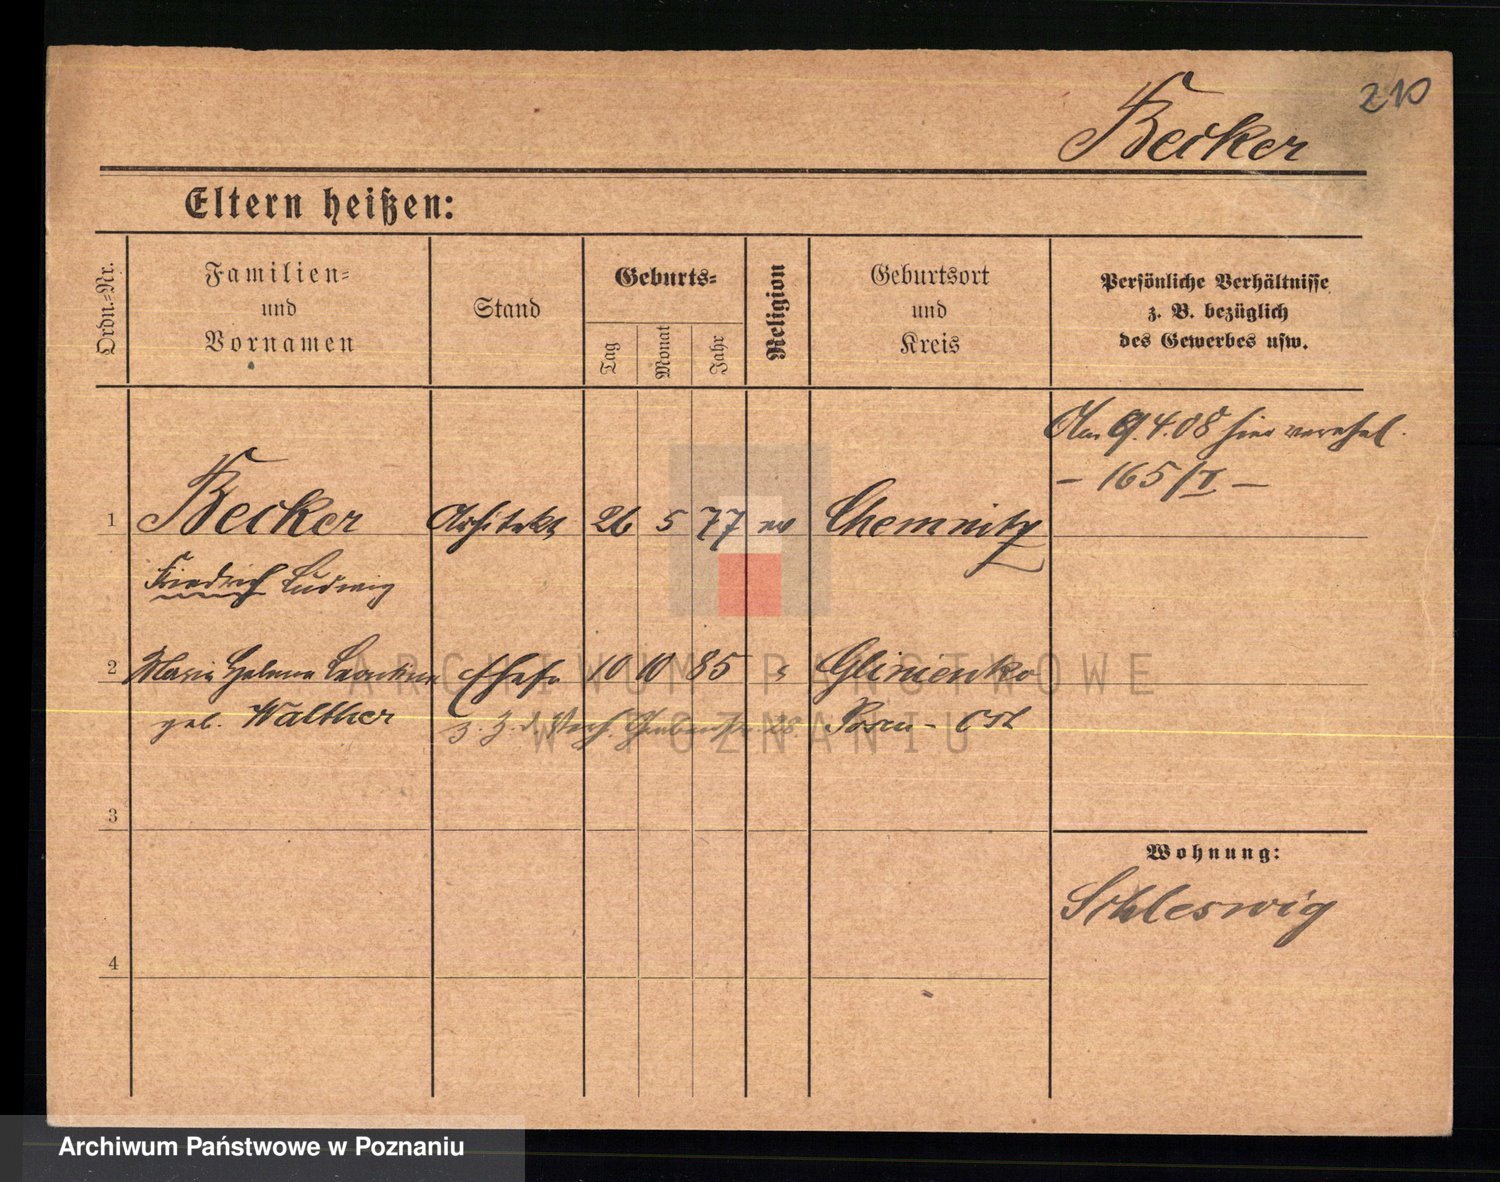 210
Becker
Eltern heißen:
Ordn.-Nr.
Familien-
und
Vornamen
Stand
Geburts-
Tag
Monat
Jahr
Religion
Geburtsort
und
Kreis
Persönliche Verhältnisse
z. B. bezüglich
des Gewerbes usw.
Am 9.4.08 hier verehel.
- 165/I -
1 Becker Architekt 26 5 77 ev Chemnitz
Friedrich Ludwig
2 Maria Helena Leontine Ehefr 10 10 85 " Glinienko
geb. Walther z. Z. d. Verh. Posen - Ost
3
Wohnung:
Schleswig
4
ARCHIWUM PAŃSTWOWE
W POZNANIU
Archiwum Państwowe w Poznaniu